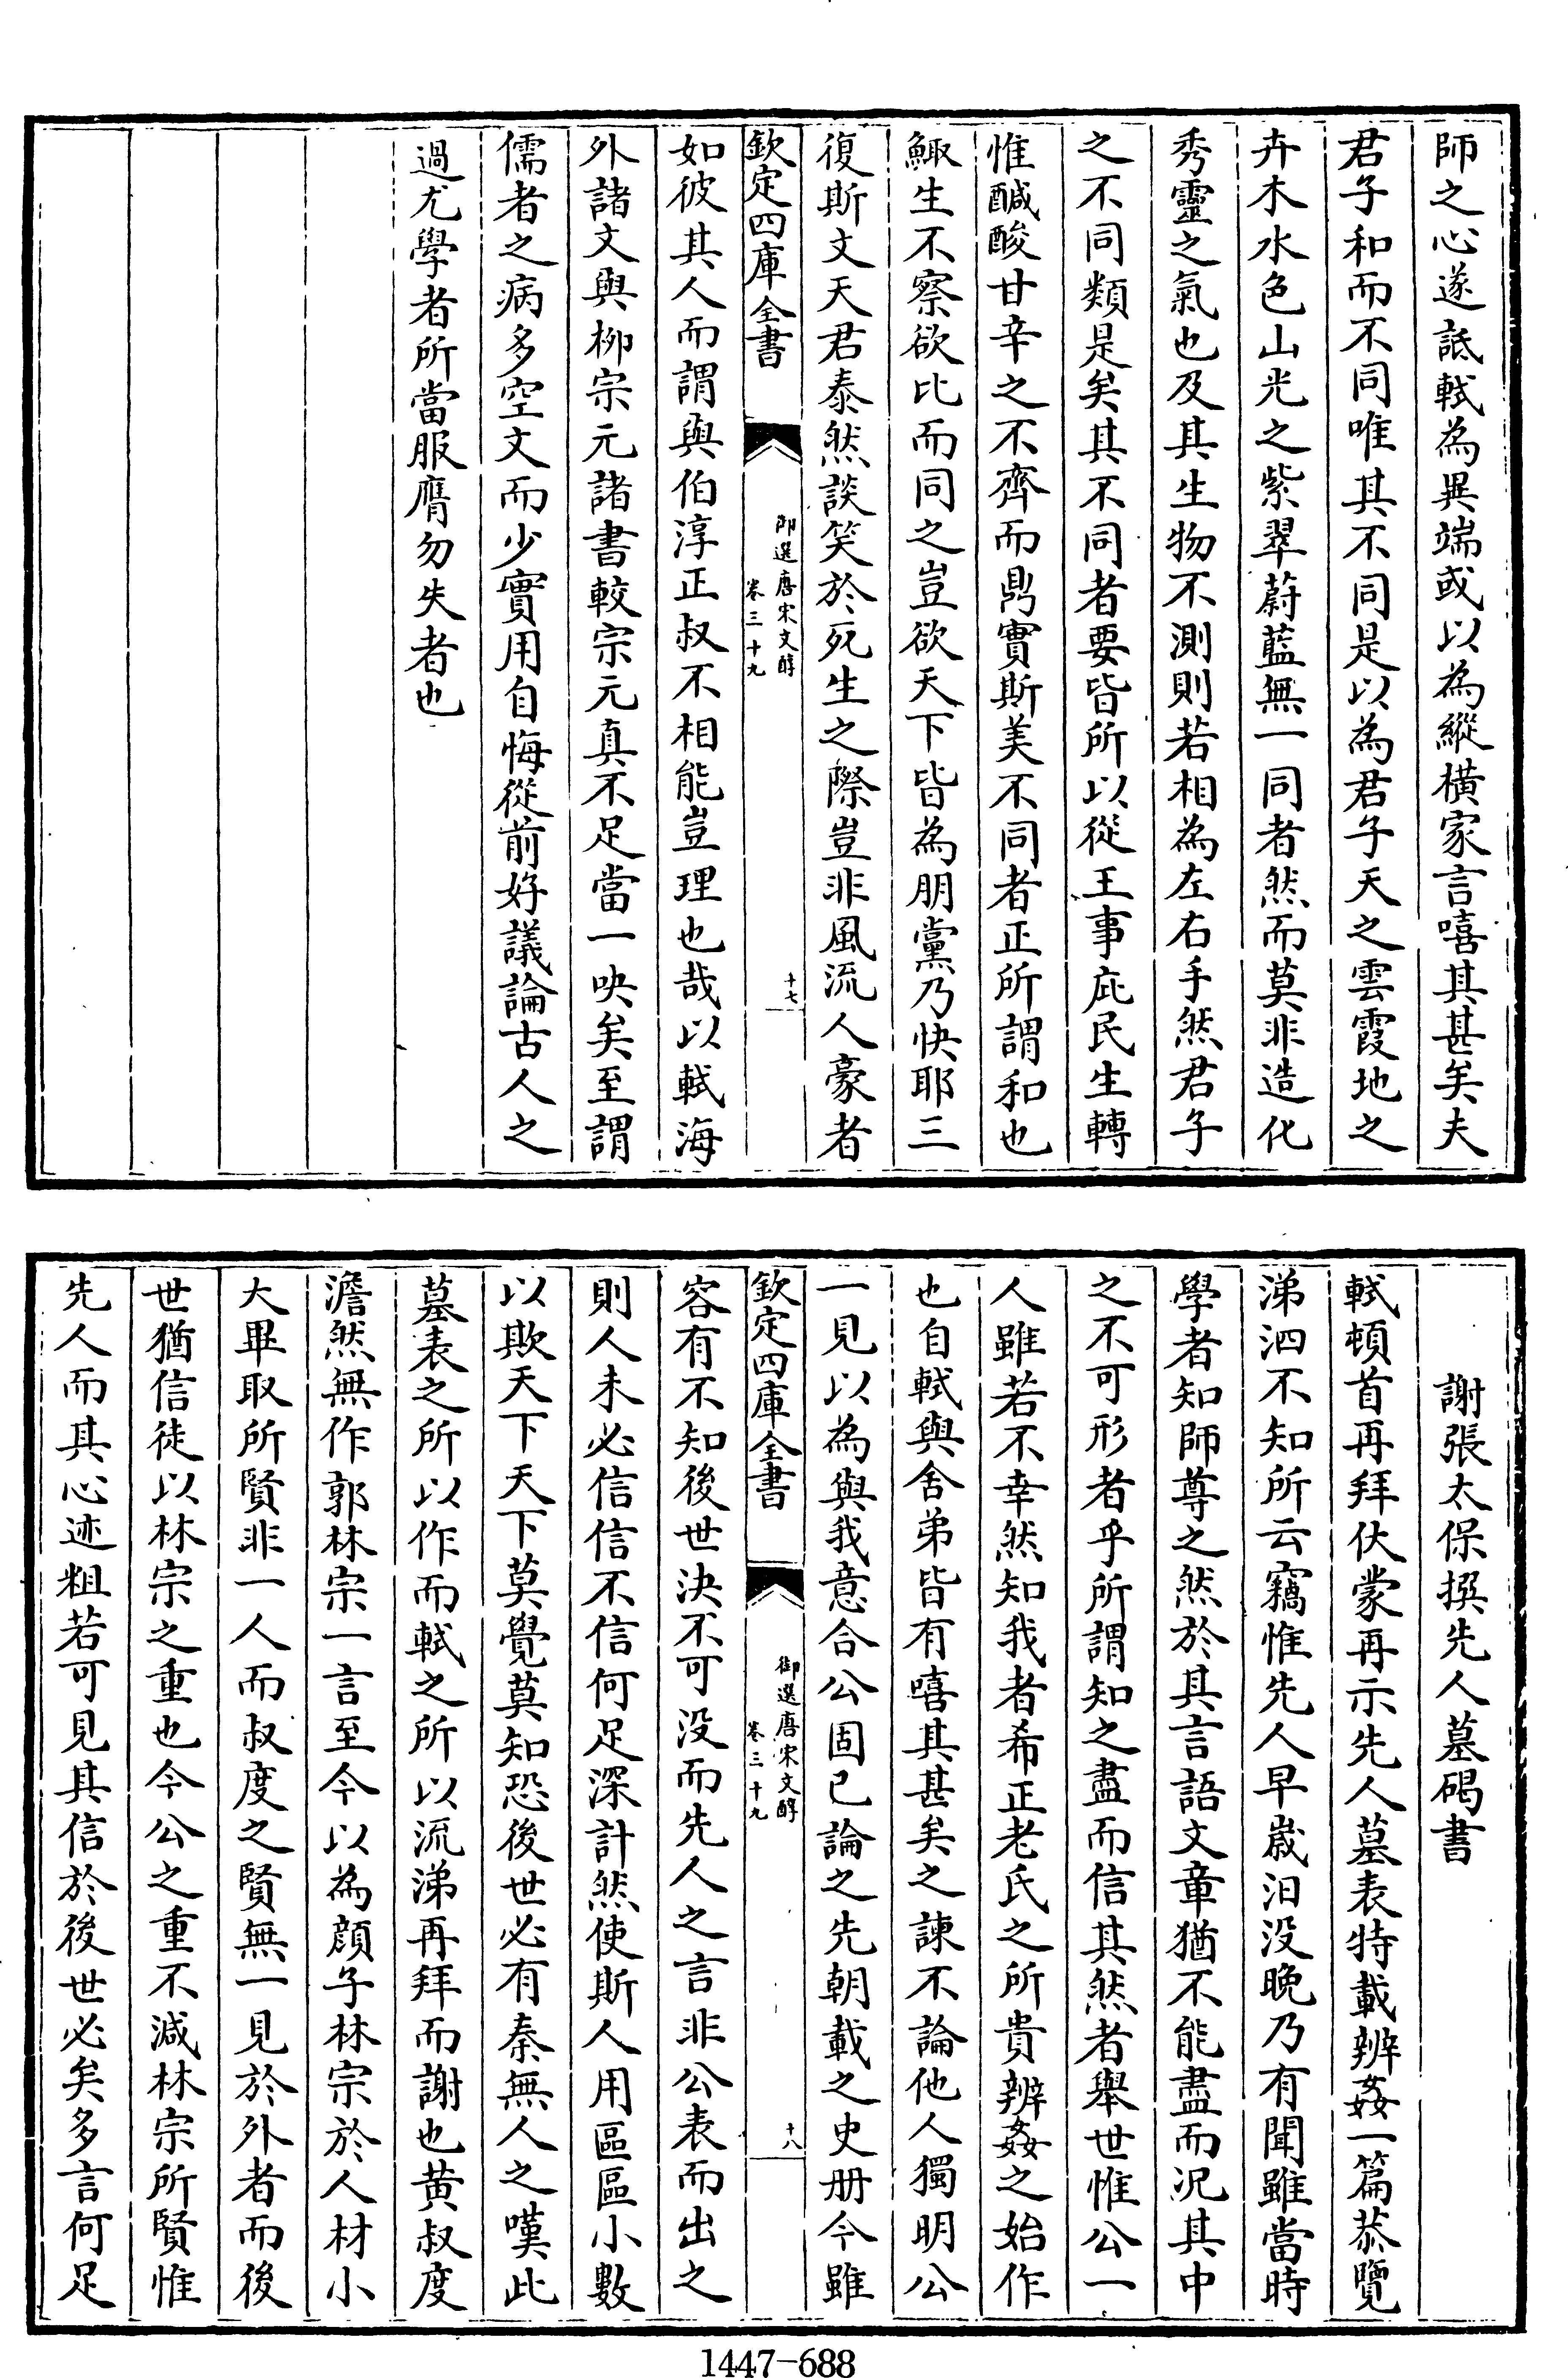 師之心遂詆軾為異端或以為縱橫家言嘻其甚矣夫
君子和而不同唯其不同是以為君子天之雲霞地之
卉木水色山光之紫翠蔚藍無一同者然而莫非造化
秀靈之氣也及其生物不測則若相為左右手然君子
之不同類是矣其不同者要皆所以從王事庇民生轉
惟醎酸甘辛之不齊而鼎實斯美不同者正所謂和也
鯫生不察欲比而同之豈欲天下皆為朋黨乃快耶三
復斯文天君泰然談笑於死生之際豈非風流人豪者
欽定四庫全書
御選唐宋文醇
卷三十九
十七
如彼其人而謂與伯淳正叔不相能豈理也哉以軾海
外諸文與柳宗元諸書較宗元真不足當一吷矣至謂
儒者之病多空文而少實用自悔從前好議論古人之
過尤學者所當服膺勿失者也
謝張太保撰先人墓碣書
軾頓首再拜伏蒙再示先人墓表特載辨姦一篇恭覽
涕泗不知所云竊惟先人早嵗汨没晚乃有聞雖當時
學者知師尊之然於其言語文章猶不能盡而況其中
之不可形者乎所謂知之盡而信其然者舉世惟公一
人雖若不幸然知我者希正老氏之所貴辨姦之始作
也自軾與舍弟皆有嘻其甚矣之諫不論他人獨明公
一見以為與我意合公固已論之先朝載之史册今雖
欽定四庫全書
御選唐宋文醇
卷三十九
十八
容有不知後世決不可没而先人之言非公表而出之
則人未必信信不信何足深計然使斯人用區區小數
以欺天下天下莫覺莫知恐後世必有秦無人之嘆此
墓表之所以作而軾之所以流涕再拜而謝也黄叔度
澹然無作郭林宗一言至今以為顔子林宗於人材小
大畢取所賢非一人而叔度之賢無一見於外者而後
世猶信徒以林宗之重也今公之重不減林宗所賢惟
先人而其心迹粗若可見其信於後世必矣多言何足
1447-688